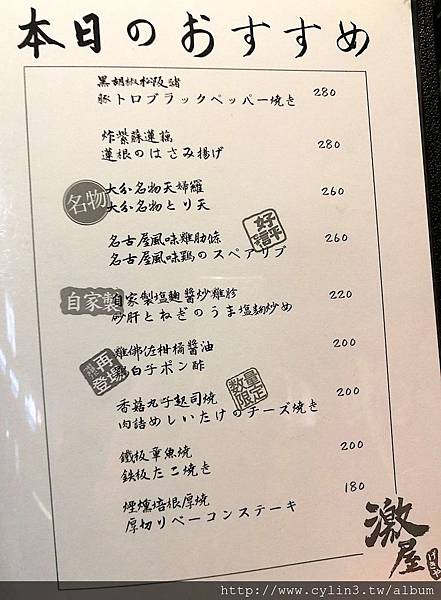 本日のおすすめ
黑胡椒松阪豬
豚トロブラックペッパー焼き 280
炸紫蘇蓮藕
蓮根のはさみ揚げ 280
名物
大分名物天婦羅
大分名物とり天 260
名古屋風味雞肋條
名古屋風味鶏のスペアリブ 260
好評
自家製
自家製塩麴醬炒雞胗
砂肝とねぎのうま塩麴炒め 220
再登場
雞佛佐柑橘醬油
白子ポン酢 200
數量限定
香菇丸子起司燒
肉詰めしいたけのチーズ焼き 200
鐵板章魚燒
鉄板たこ焼き 200
煙燻培根厚燒
厚切りベーコンステーキ 180
激屋
げきや
http://www.cylin3.tw/album